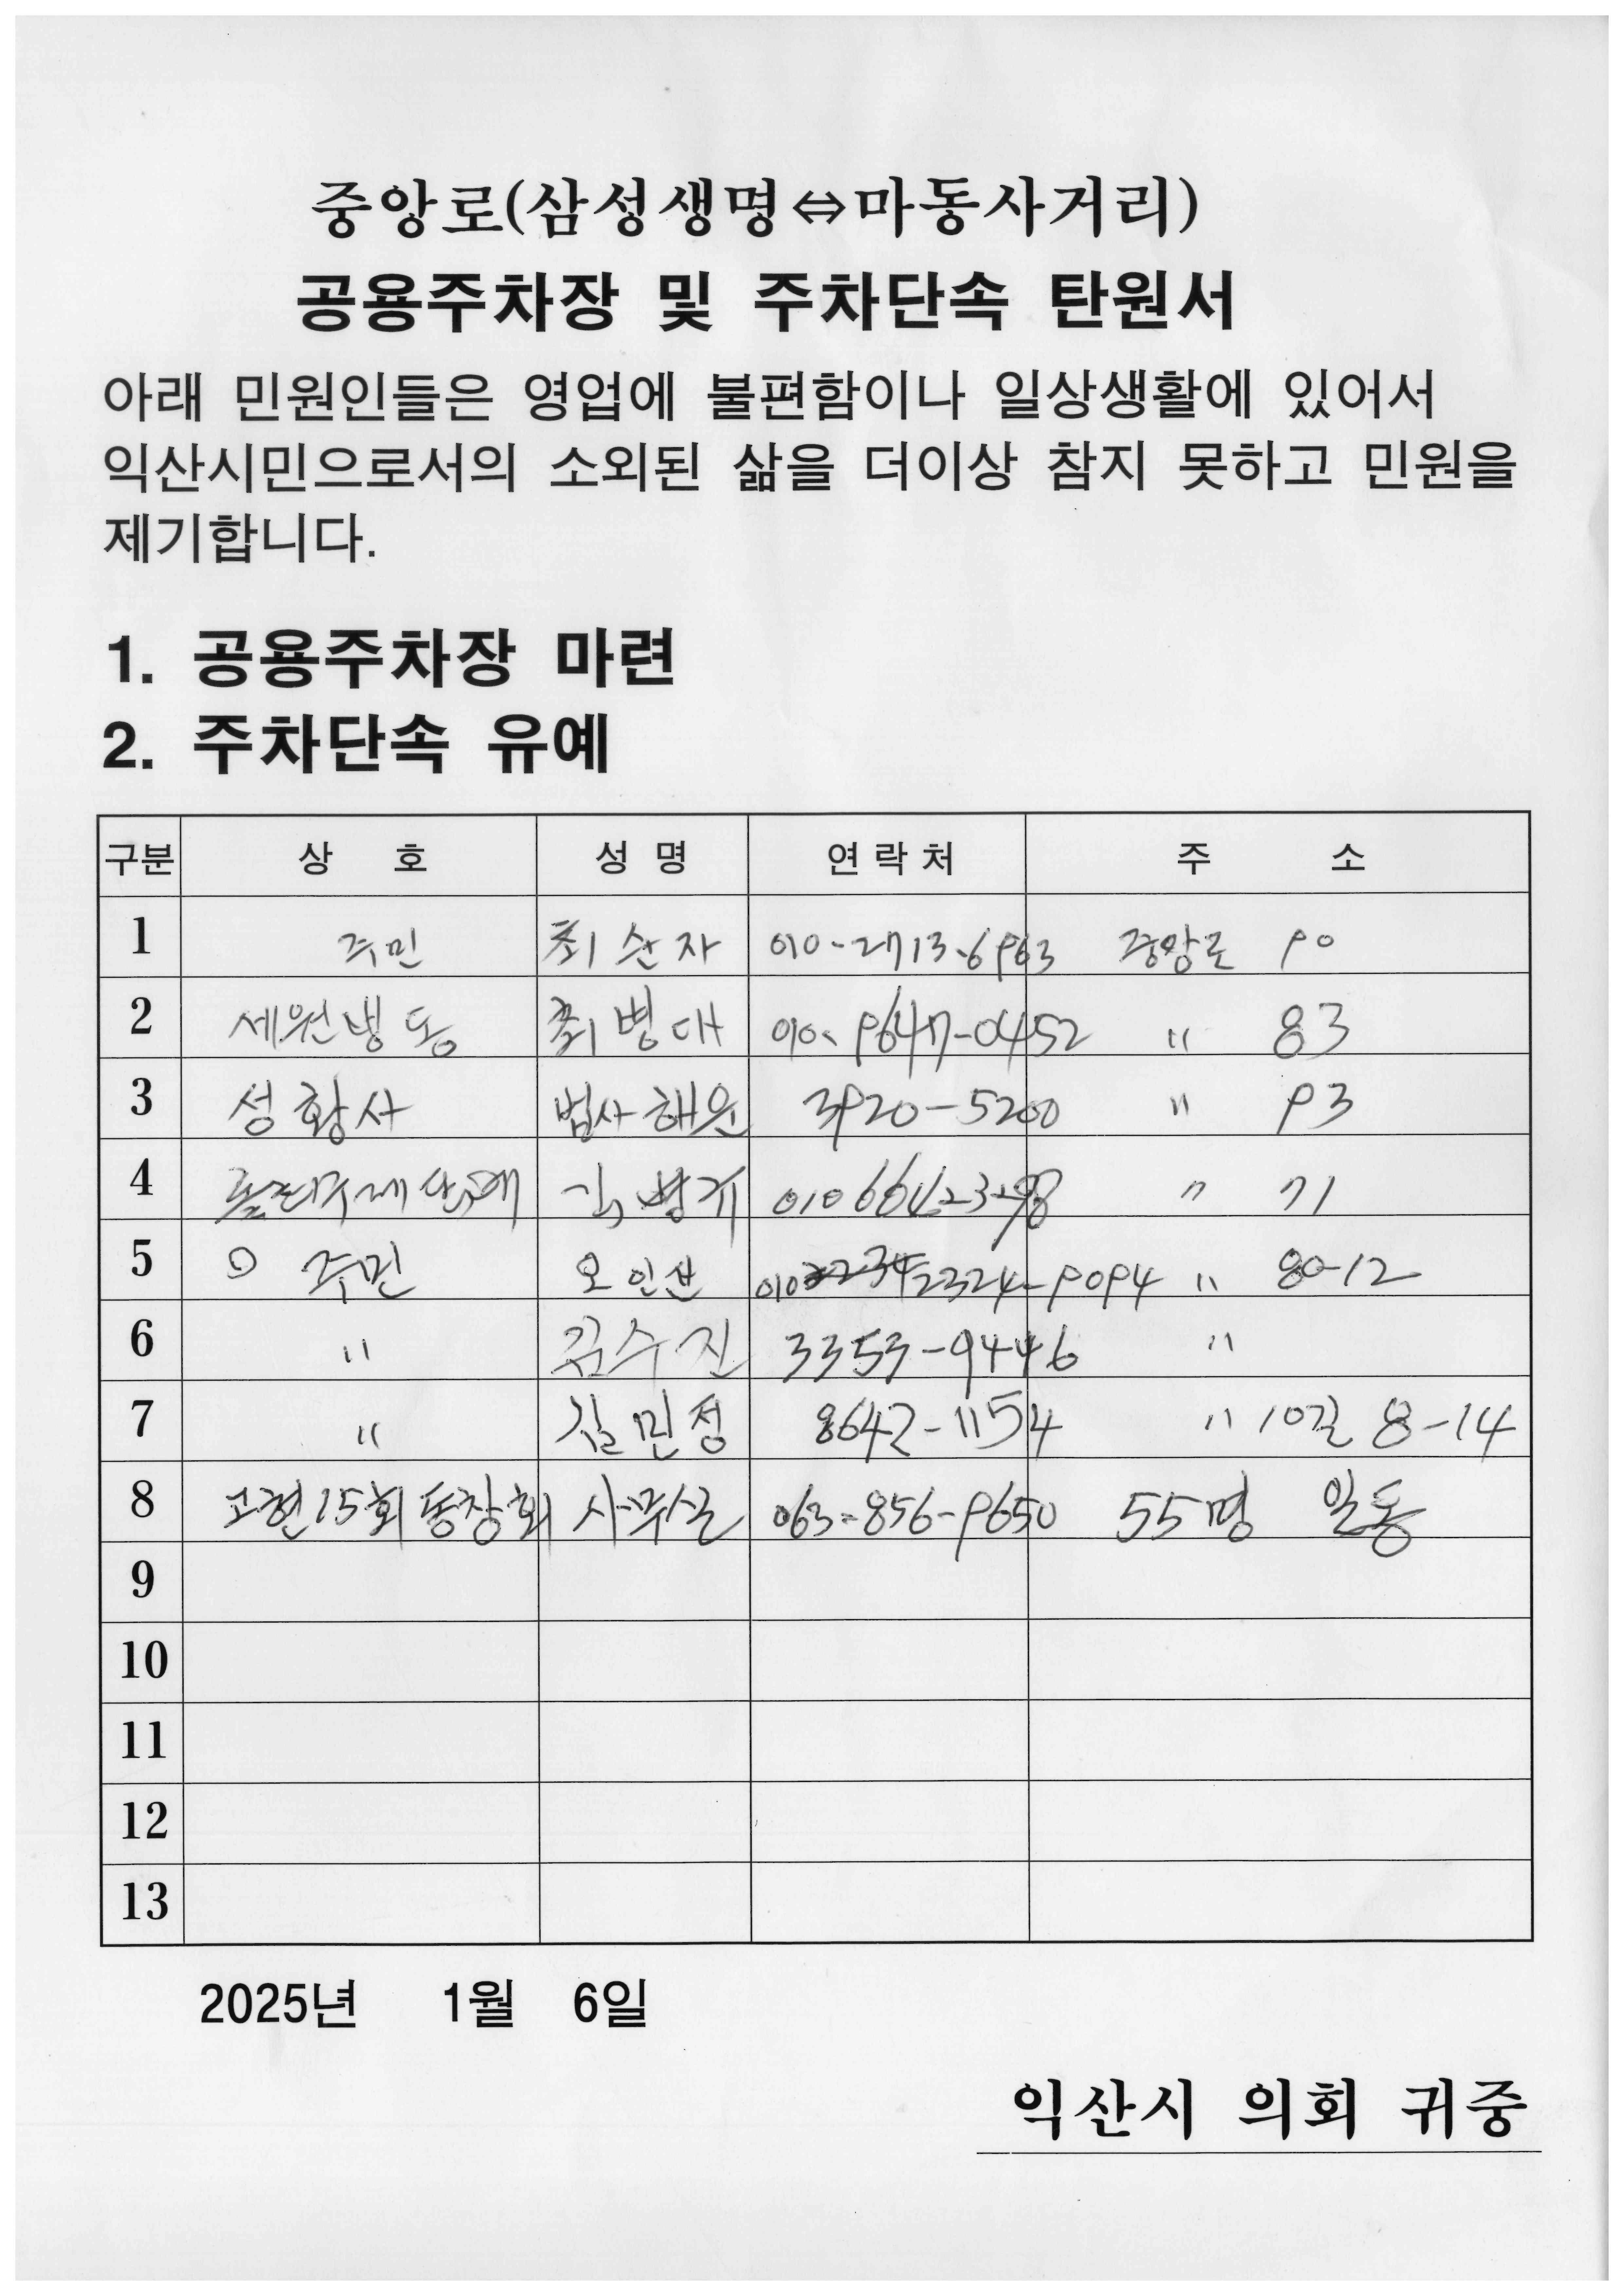 중앙로(삼성생명⇔마동사거리)
공용주차장 및 주차단속 탄원서
아래 민원인들은 영업에 불편함이나 일상생활에 있어서
익산시민으로서의 소외된 삶을 더이상 참지 못하고 민원을
제기합니다.
1. 공용주차장 마련
2. 주차단속 유예
구분 상 호 성 명 연 락 처 주 소
1 주민 최순자 010-2713-6963 중앙로 90
2 세원냉동 최병대 010-9647-0452 〃 83
3 성황사 법사해원 3920-5200 〃 93
4 〃 71
5 주민 오인선 010 2324-9094 〃 80-12
6 〃 김수진 3353-9446 〃
7 〃 길민정 8642-1154 〃 10길 8-14
8 고현15회 동창회 사무실 063-856-9650 55명 일동
9
10
11
12
13
2025년 1월 6일
익산시 의회 귀중